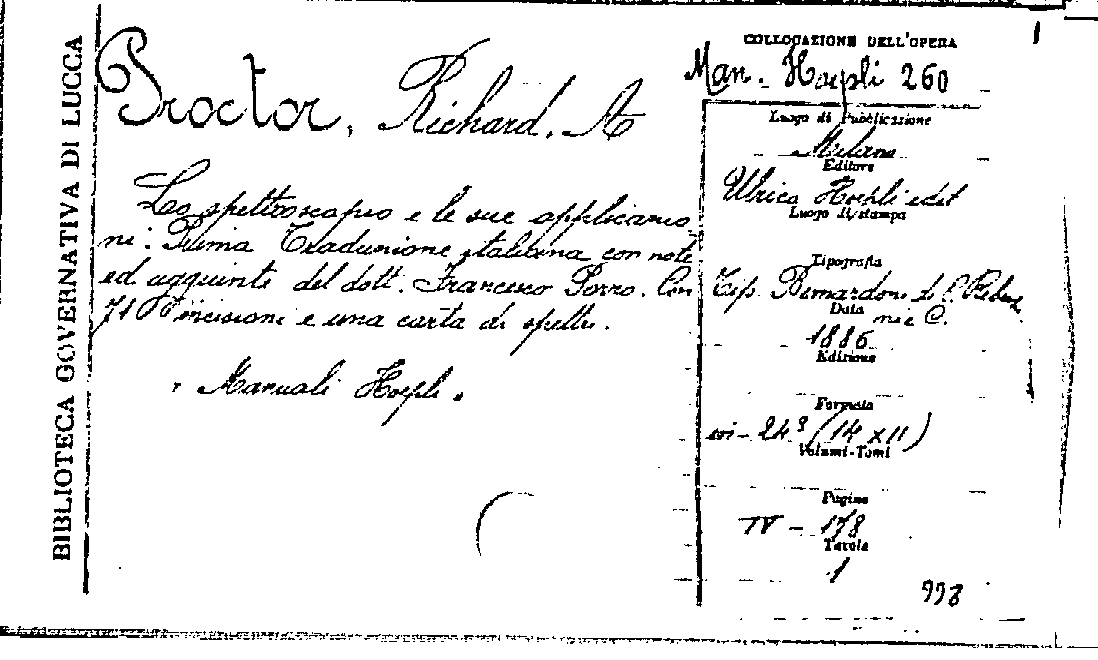 BIBLIOTECA GOVERNATIVA DI LUCCA
Proctor, Richard. A
Lo spettroscopio e le sue applicazio-
ni: Prima Traduzione italiana con note
ed aggiunte del dott. Francesco Porro. Con
71 incisioni e una carta di spettri.
"Manuali Hoepli"
1
COLLOCAZIONE DELL'OPERA
Man. Hoepli 260
Luogo di Pubblicazione
Milano
Editore
Ulrico Hoepli edit
Luogo di stampa
Tipografia
Tip. Bernardoni di C. Rebes-
chini e C.
Data
1886
Edizione
Formato
in-24° (14 x 11)
Volumi-Tomi
Pagine
IV - 178
Tavole
1